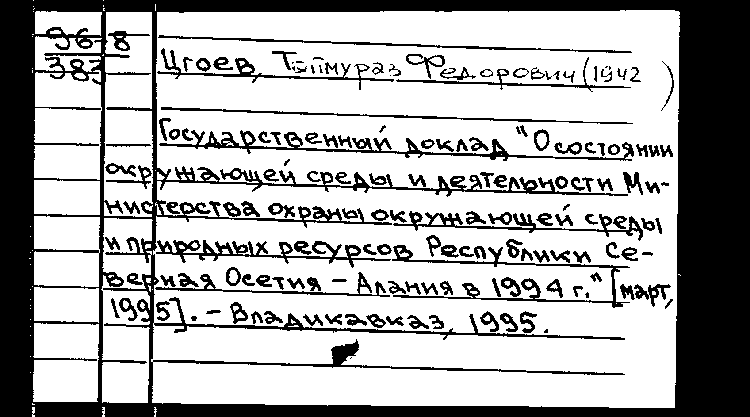 96-8
383
Цгоев, Таймураз Федорович (1942 )
Государственный доклад "О состоянии
окружающей среды и деятельности Ми-
нистерства охраны окружающей среды
и природных ресурсов Республики Се-
верная Осетия - Алания в 1994 г." [март,
1995]. - Владикавказ, 1995.